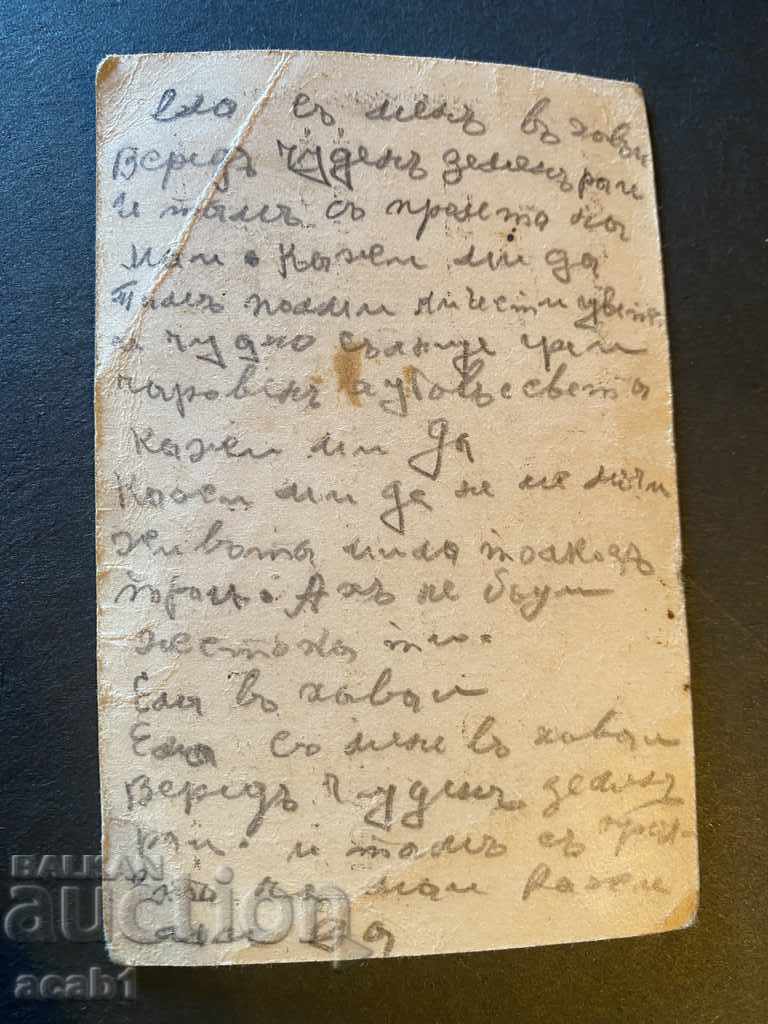 Ела съ менъ въ хаваи
Вередъ чуденъ зеленъ раи
И тамъ съ пролета на
маи. Кажеи ми да
Тамъ полми личести цвет
и чудно сълнце греи
чаровенъ хубавъ света
Кажеи ми да
Кажеи ми да не ме мъчи
живота мила толкозъ
Ахъ не бъди
жестока ти.
Ела въ хаваи
Ела съ мене въ хаваи
Вередъ чуденъ зеленъ
раи. и тамъ съ прол-
ета на маи кажеи
ми да
BALKAN
auction
acab1